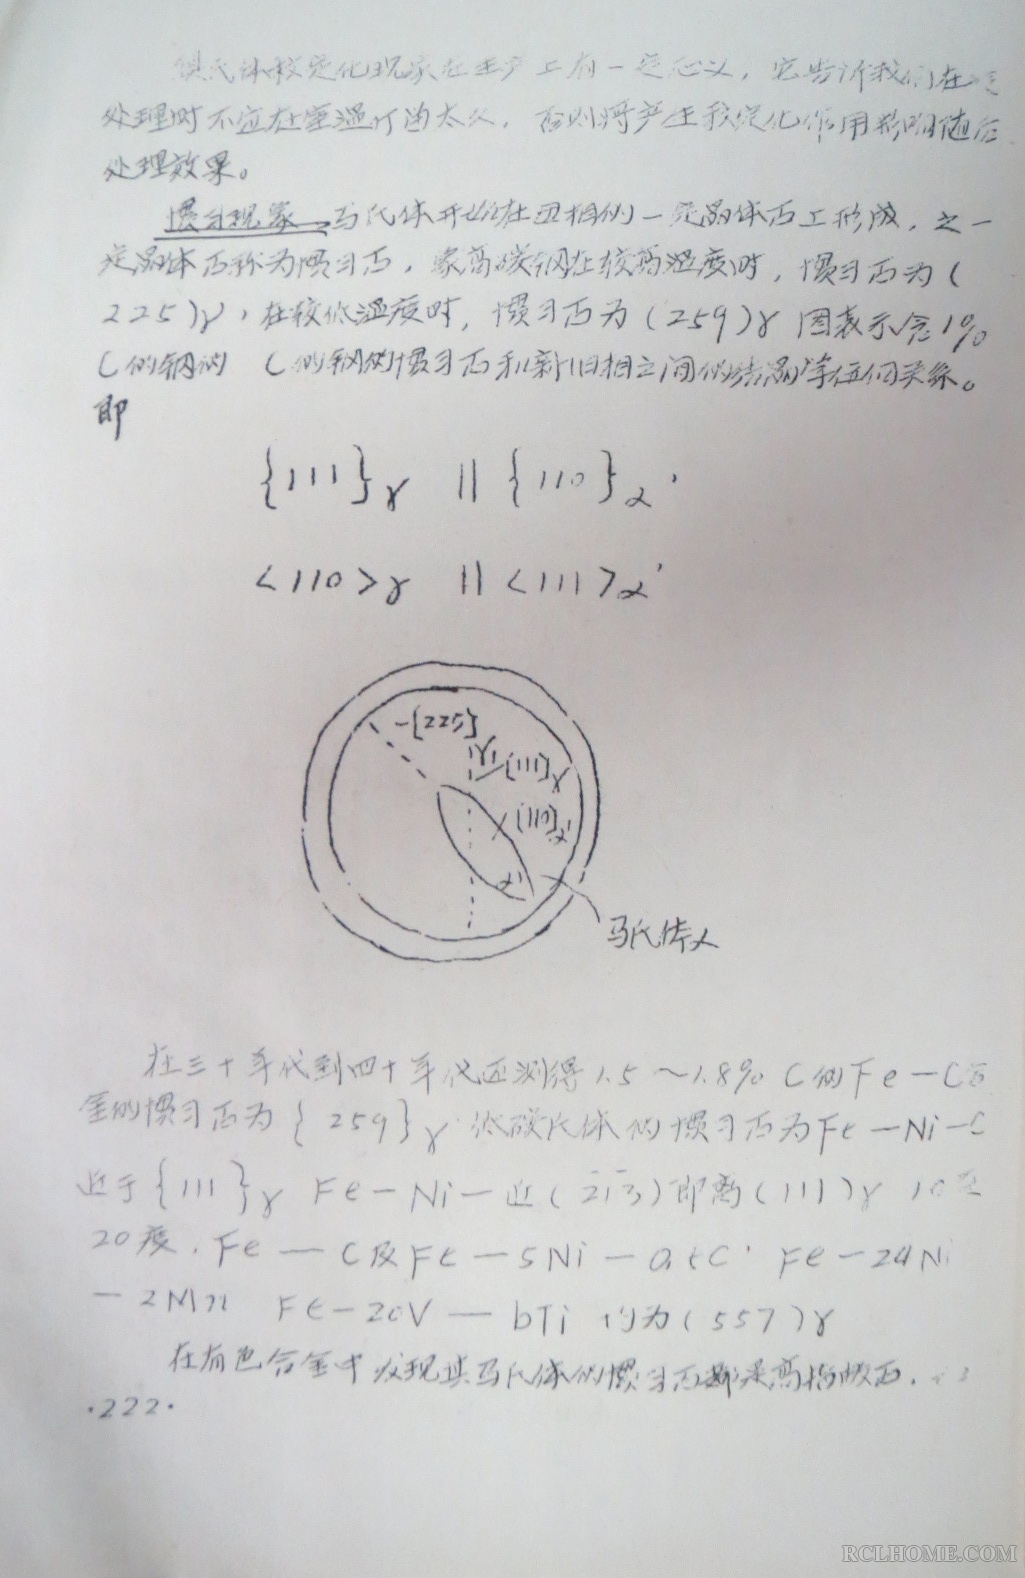 奥氏体稳定化现象在生产上有一定意义，它告诉我们在
处理时不宜在室温停留太久，否则将产生稳定化作用影响随后
处理效果。
惯习现象 马氏体开始在旧相的一定晶体面上形成，之一
定晶体面称为惯习面，象高碳钢在较高温度时，惯习面为（
225）γ，在较低温度时，惯习面为（259）γ 图表示含1%
C的钢的 C的钢的惯习面和新旧相之间的结晶学位向关系。
即
{111}γ || {110}α'
<110>γ || <111>α'
{225}
γ
{111}γ
{110}α'
α'
马氏体
在三十年代到四十年代还测得1.5～1.8% C的Fe－C合
金的惯习面为{259}γ 低碳氏体的惯习面为Fe－Ni－C
近于{111}γ Fe－Ni－近(2̄1̄3)即离(111)γ 10至
20度．Fe－C及Fe－5Ni－ Fe－24Ni
－2Mn Fe－20V－6Ti 均为(557)γ
在有色合金中发现其马氏体的惯习面都是高指数面．
·222·
RCLHOME.COM